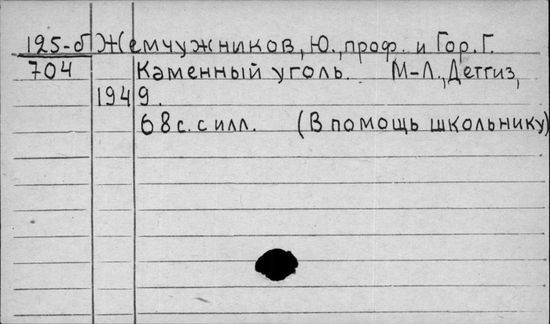 125-б Жемчужников, Ю., проф. и Гор. Г.
704 Каменный уголь. М-Л., Детгиз,
1949.
68 с. с илл. (В помощь школьнику)